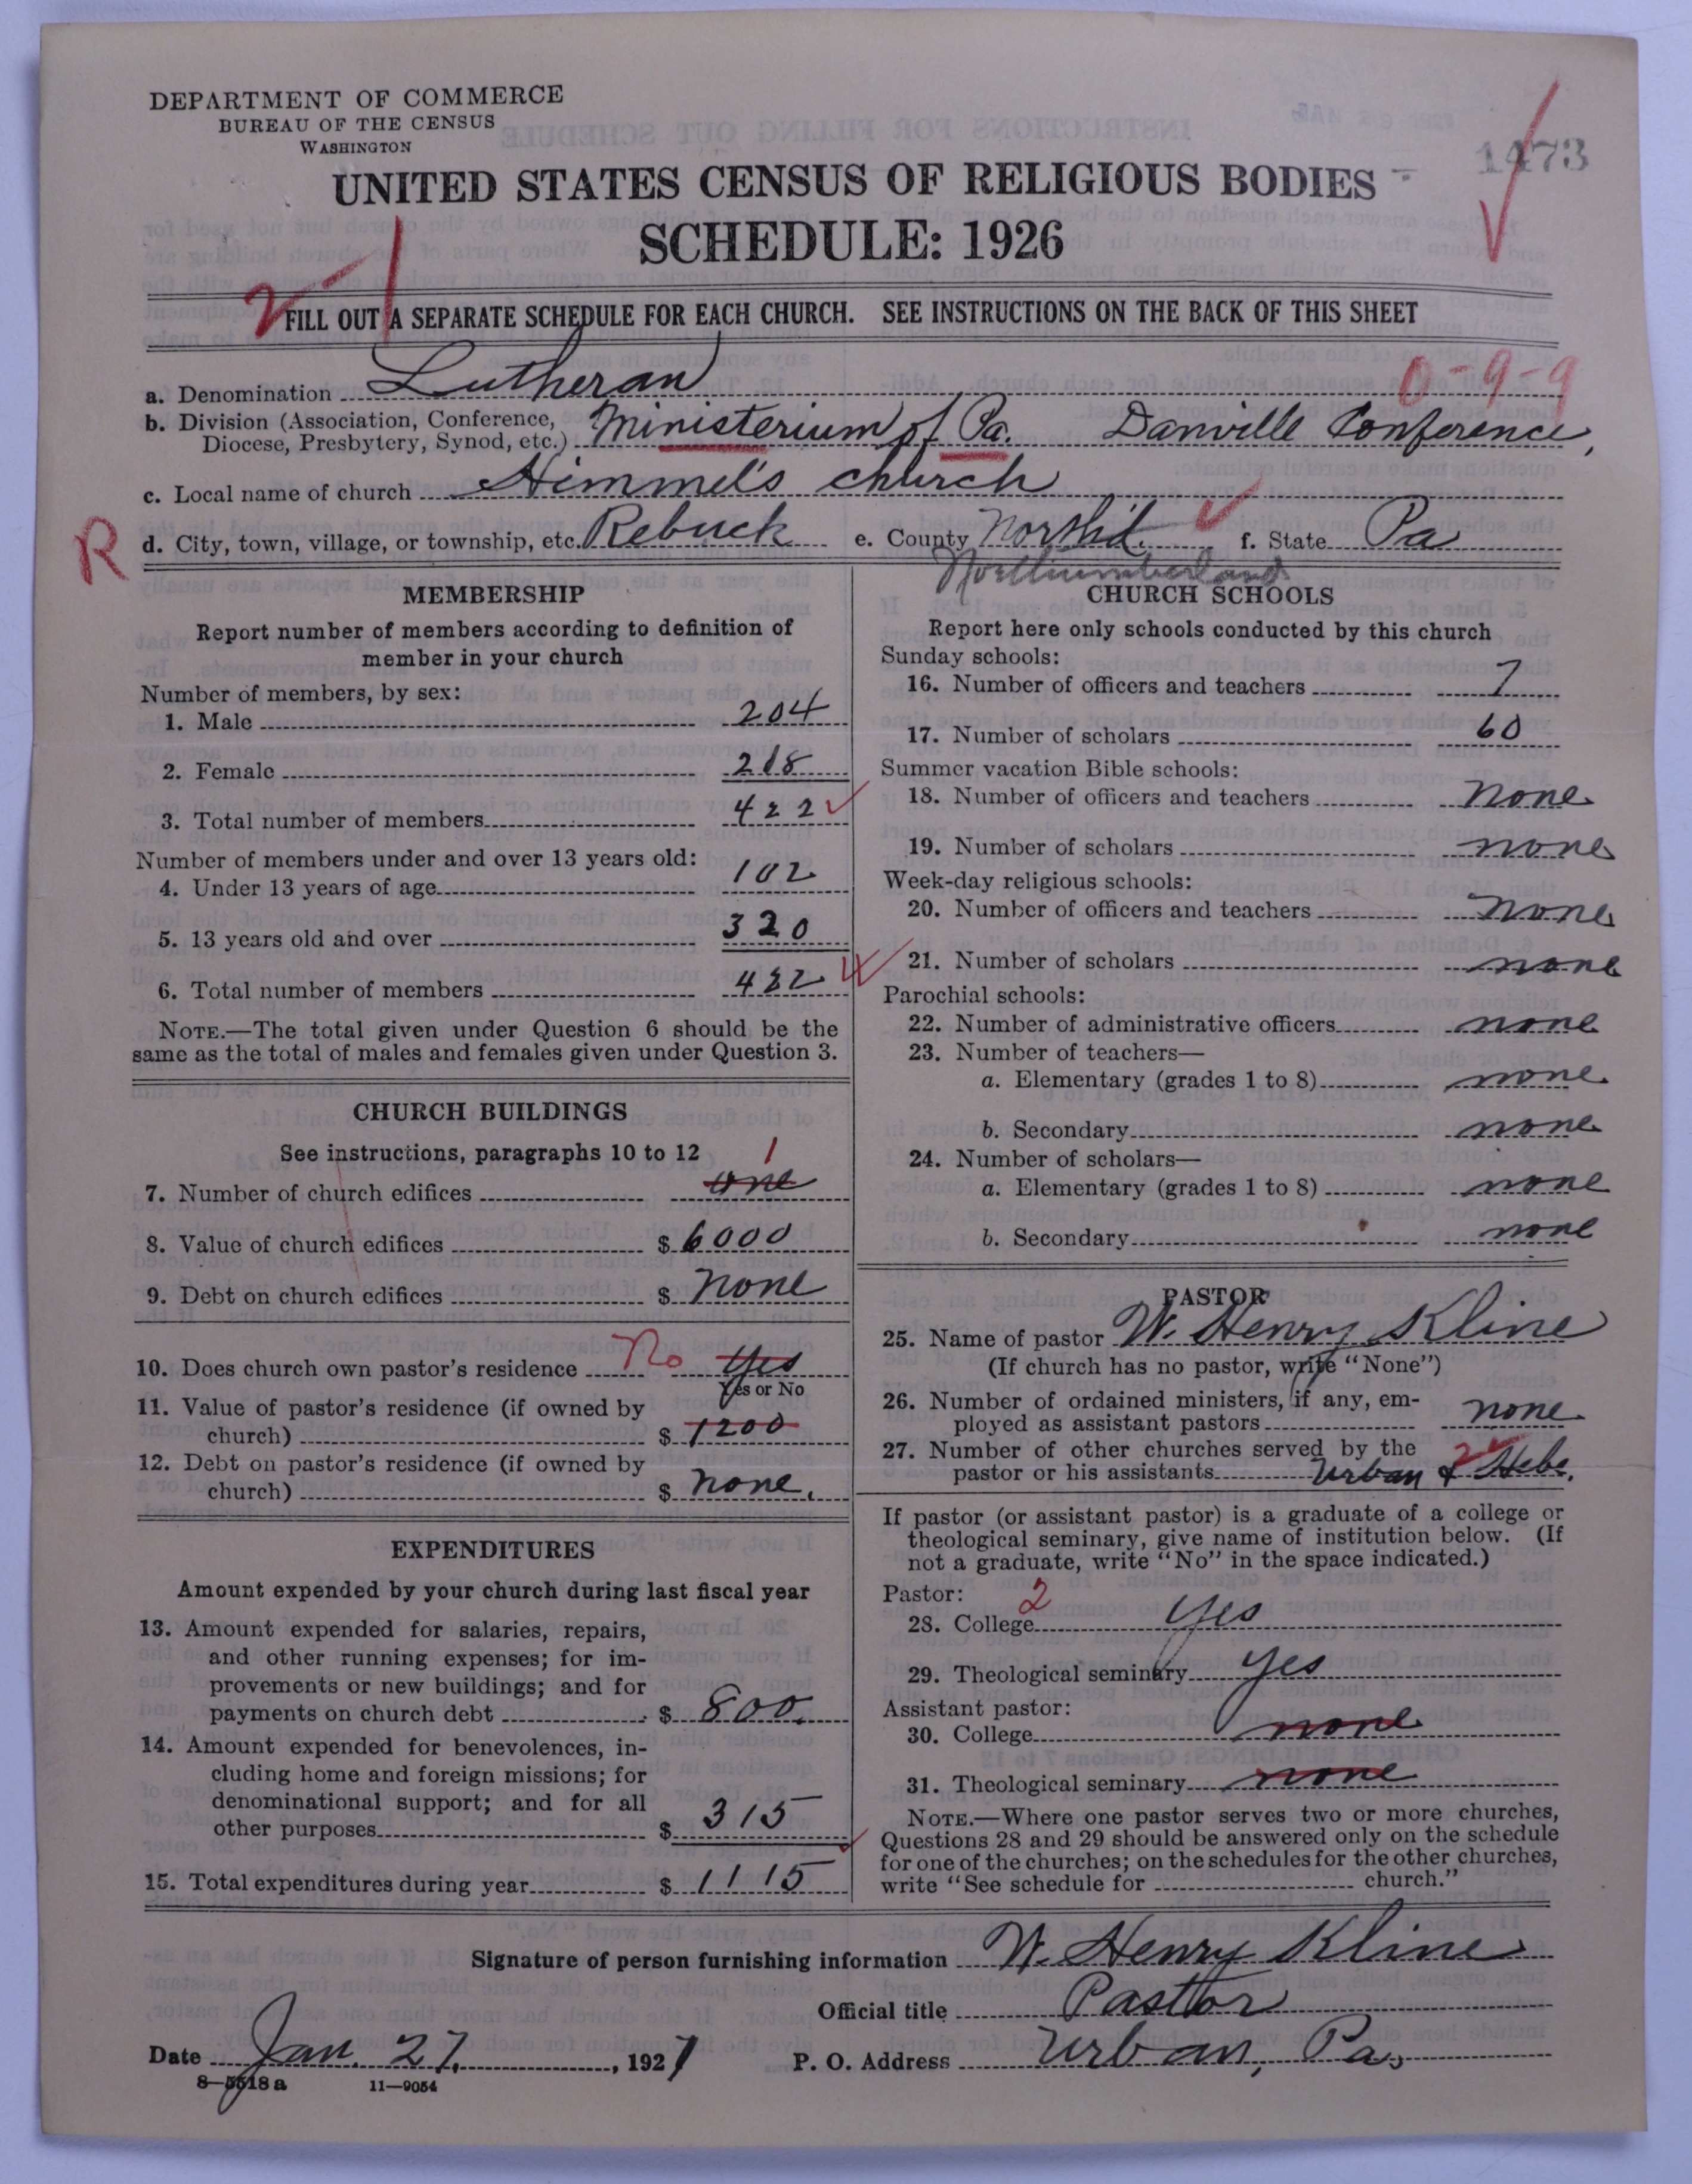 DEPARTMENT OF COMMERCE
BUREAU OF THE CENSUS
WASHINGTON
1473
UNITED STATES CENSUS OF RELIGIOUS BODIES
SCHEDULE: 1926
FILL OUT A SEPARATE SCHEDULE FOR EACH CHURCH. SEE INSTRUCTIONS ON THE BACK OF THIS SHEET
0-9-9
a. Denomination Lutheran
b. Division (Association, Conference,
Diocese, Presbytery, Synod, etc.) Ministerium of Pa. Danville Conference,
c. Local name of church Himmel's church
R d. City, town, village, or township, etc. Rebuck e. County North'd. f. State Pa
Northumberland
MEMBERSHIP
Report number of members according to definition of
member in your church
Number of members, by sex:
1. Male 204
2. Female 218
3. Total number of members 422
Number of members under and over 13 years old:
4. Under 13 years of age 102
5. 13 years old and over 320
6. Total number of members 422
NOTE.—The total given under Question 6 should be the
same as the total of males and females given under Question 3.
CHURCH BUILDINGS
See instructions, paragraphs 10 to 12
1
7. Number of church edifices one
8. Value of church edifices $ 6000
9. Debt on church edifices $ None
10. Does church own pastor's residence No Yes
Yes or No
11. Value of pastor's residence (if owned by
church) $ 1200
12. Debt on pastor's residence (if owned by
church) $ None.
EXPENDITURES
Amount expended by your church during last fiscal year
13. Amount expended for salaries, repairs,
and other running expenses; for im-
provements or new buildings; and for
payments on church debt $ 800.
14. Amount expended for benevolences, in-
cluding home and foreign missions; for
denominational support; and for all
other purposes $ 315
15. Total expenditures during year $ 1115
CHURCH SCHOOLS
Report here only schools conducted by this church
Sunday schools:
16. Number of officers and teachers 7
17. Number of scholars 60
Summer vacation Bible schools:
18. Number of officers and teachers None
19. Number of scholars none
Week-day religious schools:
20. Number of officers and teachers None
21. Number of scholars none
Parochial schools:
22. Number of administrative officers none
23. Number of teachers—
a. Elementary (grades 1 to 8) none
b. Secondary none
24. Number of scholars—
a. Elementary (grades 1 to 8) none
b. Secondary none
PASTOR
25. Name of pastor W. Henry Kline
(If church has no pastor, write "None")
26. Number of ordained ministers, if any, em-
ployed as assistant pastors none
27. Number of other churches served by the
pastor or his assistants Urban & Hebe. 2
If pastor (or assistant pastor) is a graduate of a college or
theological seminary, give name of institution below. (If
not a graduate, write "No" in the space indicated.)
Pastor: 2
28. College Yes
29. Theological seminary Yes
Assistant pastor:
30. College none
31. Theological seminary none
NOTE.—Where one pastor serves two or more churches,
Questions 28 and 29 should be answered only on the schedule
for one of the churches; on the schedules for the other churches,
write "See schedule for church."
Signature of person furnishing information W. Henry Kline
Official title Pastor
Date Jan. 27, 1927 P. O. Address Urban, Pa.
8—5518 a 11—9054